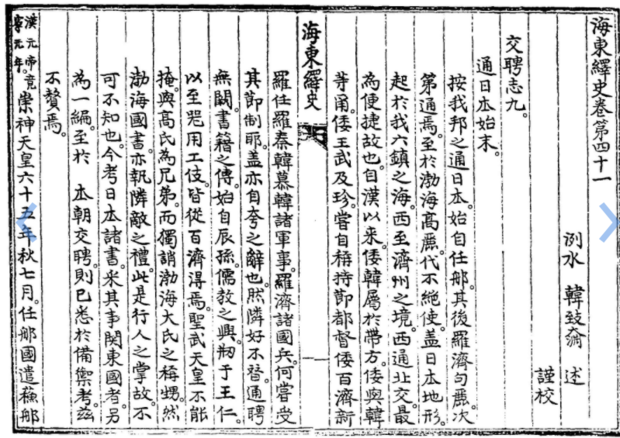 海東繹史卷第四十一
洌水 韓致奫 述
謹校
交聘志九。
通日本始末。
按我邦之通日本。始自任那。其後羅濟句麗。次
第通焉。至於渤海高麗。代不絶使。盖日本地形。
起於我六鎮之海。西至濟州之境。西通北交。最
為便捷故也。自漢以来。倭韓屬於帶方。倭與韓
等甫。倭王武及珍。嘗自稱持節都督倭百濟新
海東繹史
羅任羅秦韓慕韓諸軍事。羅濟諸國兵。何嘗受
其節制耶。盖亦自夸之辭也。然隣好不替。通聘
無闕。書籍之傳。始自辰孫。儒教之興。刱于王仁。
以至器用工伎。皆從百濟得焉。聖武天皇不能
掩。與高氏為兄弟。而獨誚渤海大氏之稱甥。然
渤海國書。亦執隣敵之禮。此是行人之掌故。不
可不知也。今考日本諸書。采其事関東國者。另
為一編。至於 本朝交聘。則已悉於備禦考。玆
不贅焉。
漢元帝竟寧元年。崇神天皇六十五年秋七月。任那國遣蘓那